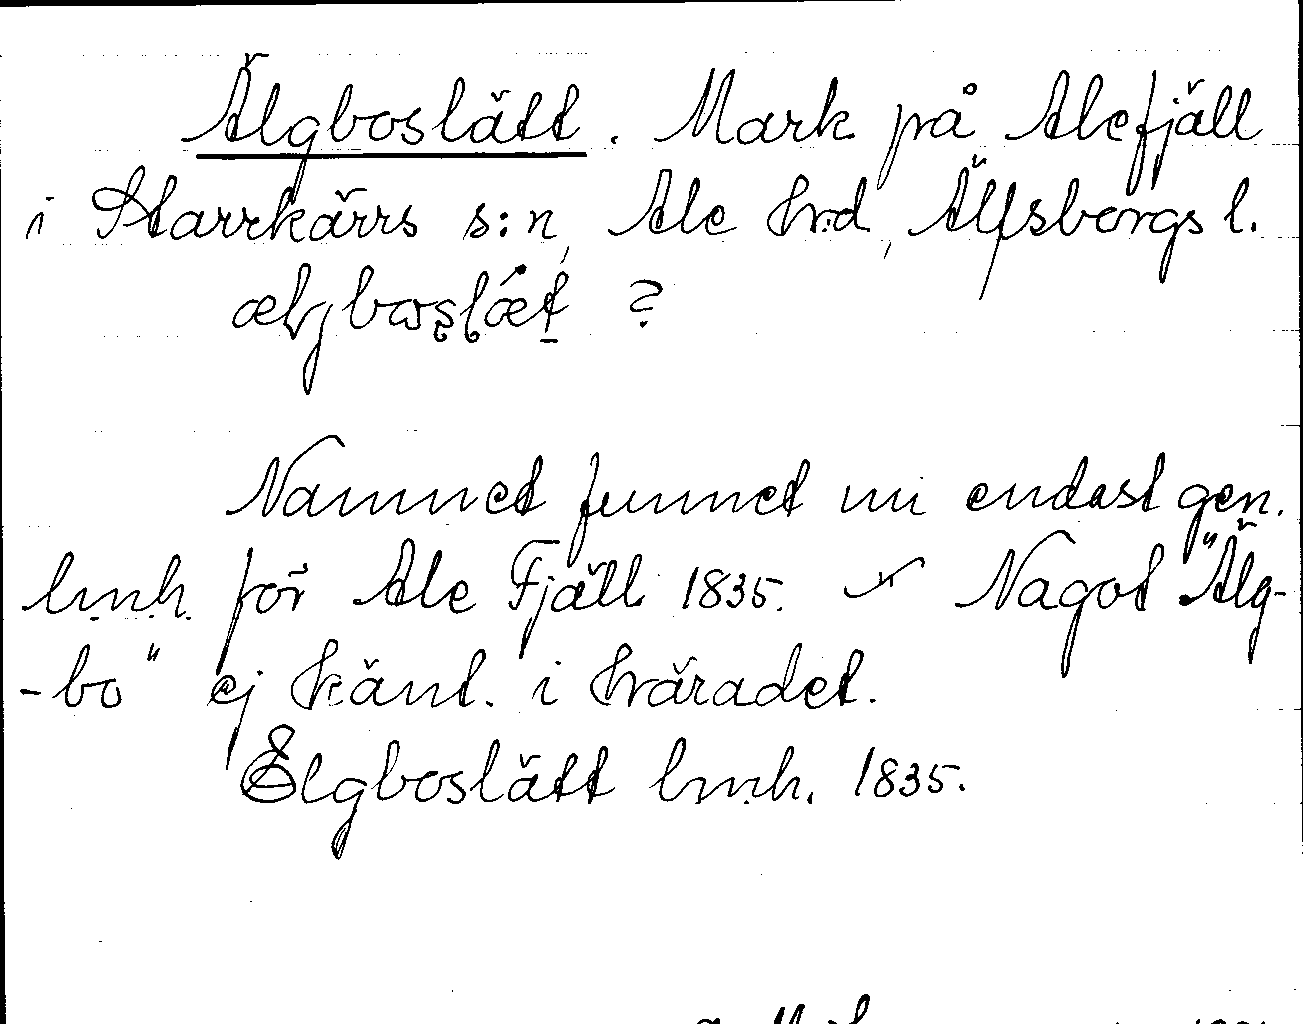 Älgboslätt. Mark på Alefjäll
i Starrkärrs s:n, Ale hrd, Älfsborgs l.
æljboslæt ?
Namnet funnet nu endast gen.
lmh. för Ale Fjäll 1835. Nagot "Älg-
-bo" ej känt. i häradet.
Elgboslätt lmh. 1835.